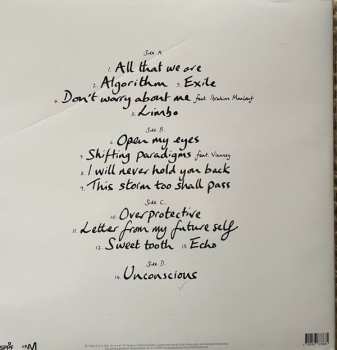 Side A.
1. All that we are
2. Algorithm 3. Exile
4. Don't worry about me feat. Ibrahim Maalouf
5. Limbo
Side B.
6. Open my eyes
7. Shifting paradigms feat. Vianney
8. I will never hold you back
9. This storm too shall pass
Side C.
10. Overprotective
11. Letter from my future self
12. Sweet tooth 13. Echo
Side D.
14. Unconscious